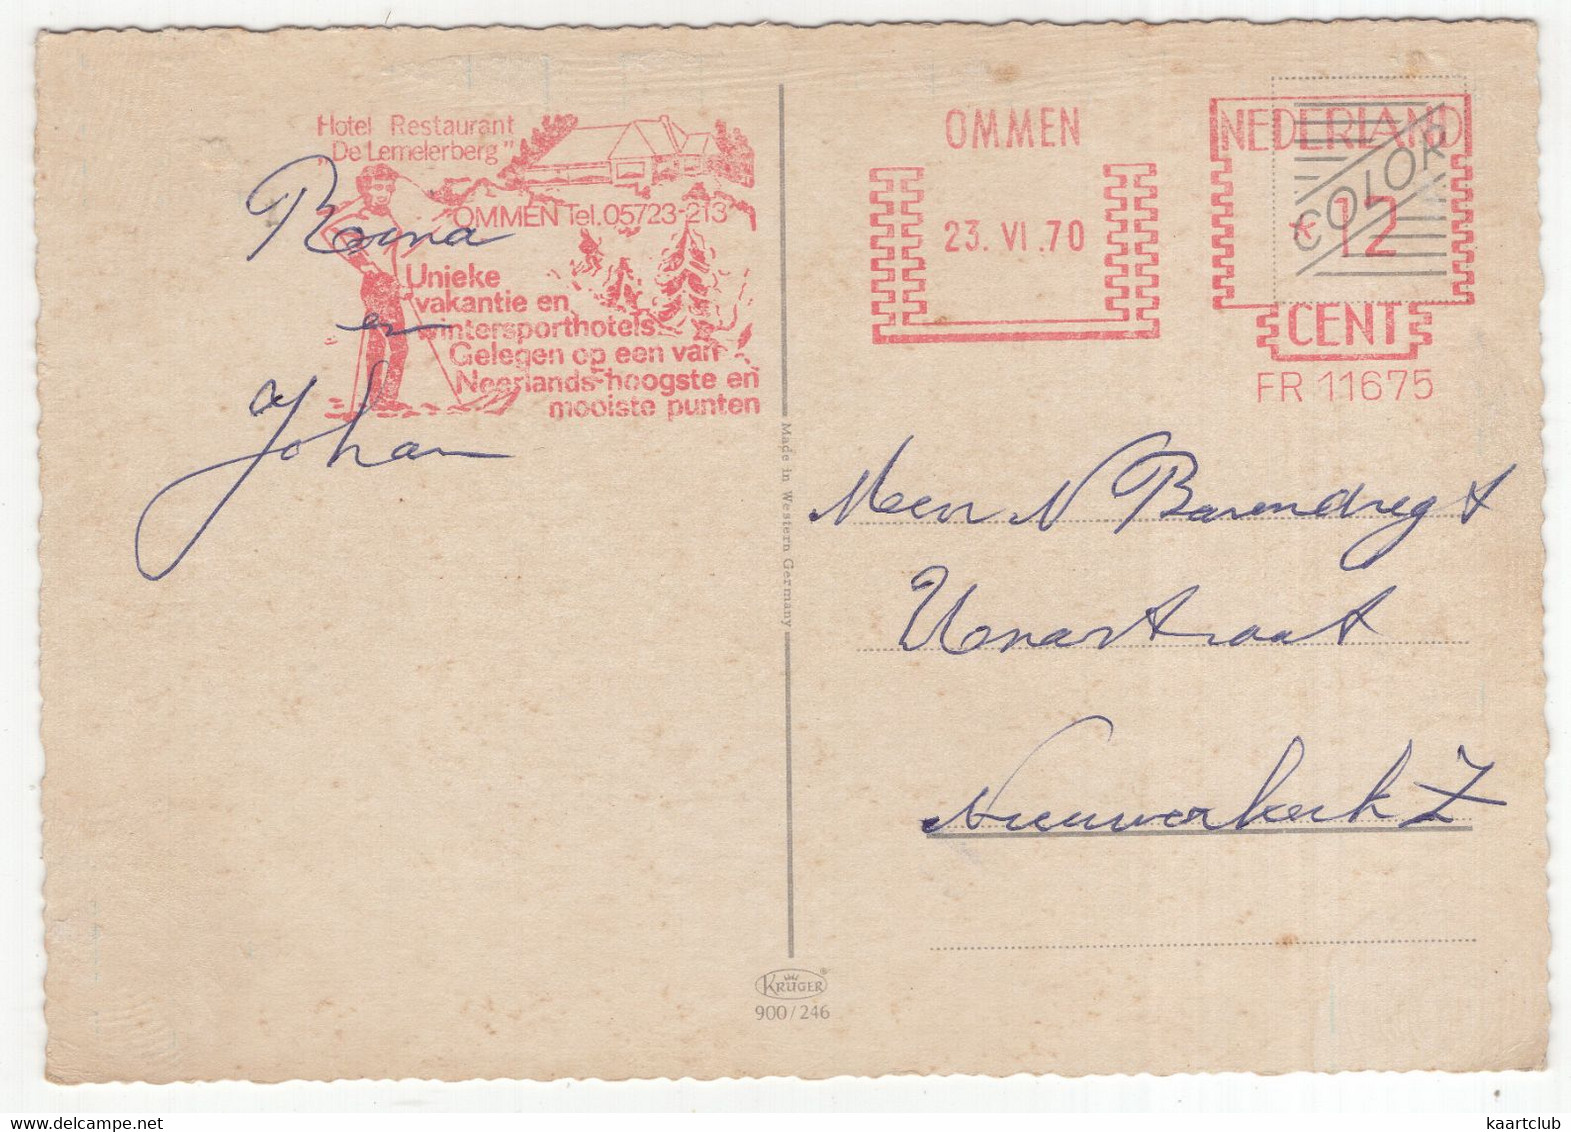 Hotel Restaurant
"De Lemelerberg"
OMMEN Tel. 05723-213
Unieke
vakantie en
wintersporthotels.
Gelegen op een van
Neerlands hoogste en
mooiste punten
en
Johan
OMMEN
23. VI .70
NEDERLAND
COLOR
*12
CENT
FR 11675
Made in Western Germany
N Barendregt
Nieuwerkerk Z
KRÜGER®
900/246
www.delcampe.net
kaartclub